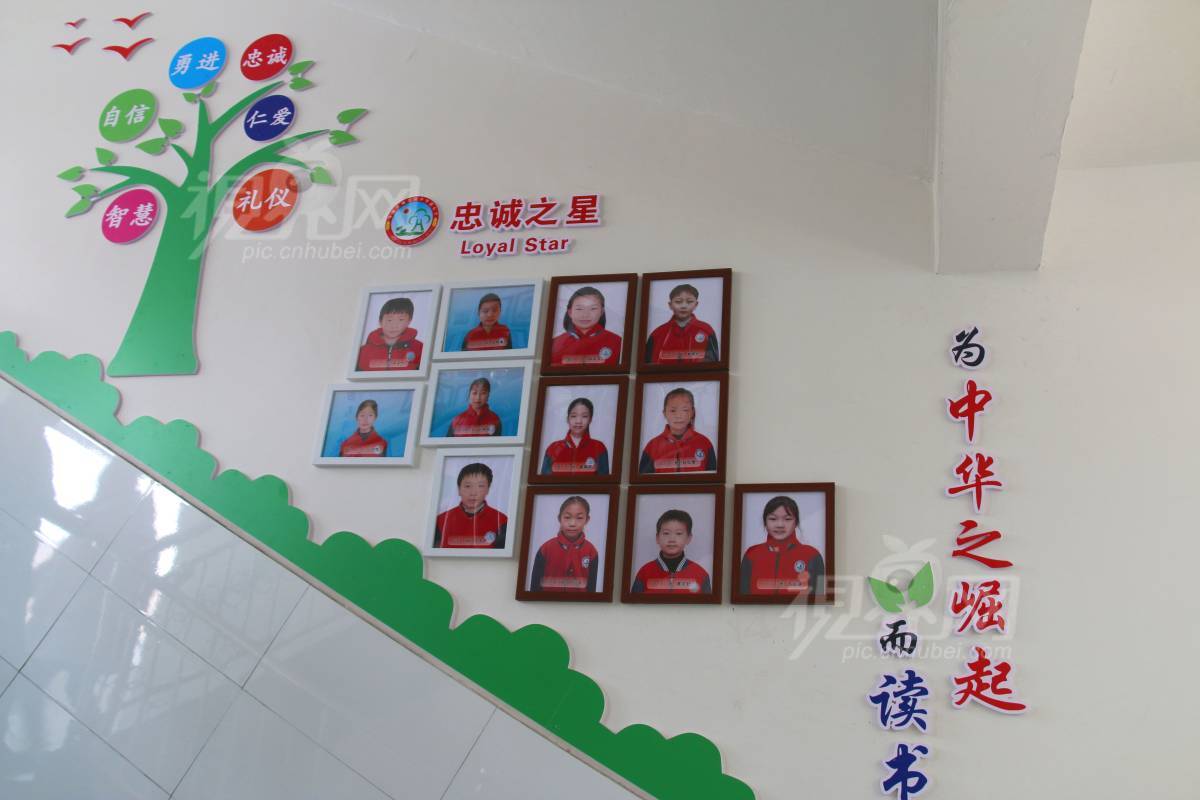 勇进
忠诚
自信
仁爱
智慧
礼仪
视界网
pic.cnhubei.com
忠诚之星
Loyal Star
为中华之崛起
而读书
视界网
pic.cnhubei.com